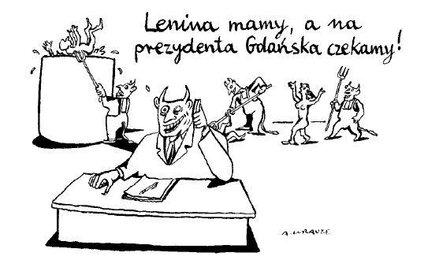 Lenina mamy, a na
prezydenta Gdańska czekamy!
A. KRAUZE